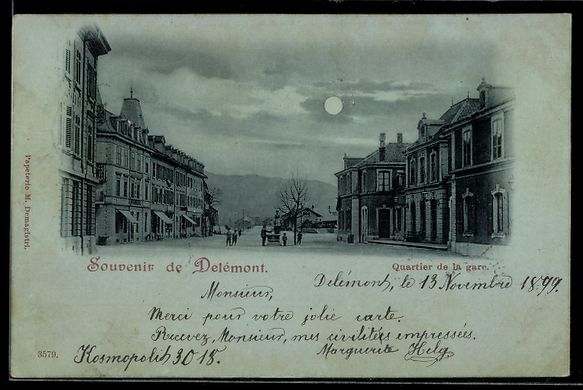 Papeterie M. Demagistri.
Souvenir de Delémont.
Quartier de la gare.
Delémont, le 13 Novembre 1899.
Monsieur,
Merci pour votre jolie carte.
Recevez, Monsieur, mes civilitées empressées.
Marguerite Helg
3579.
Kosmopolit 3018.